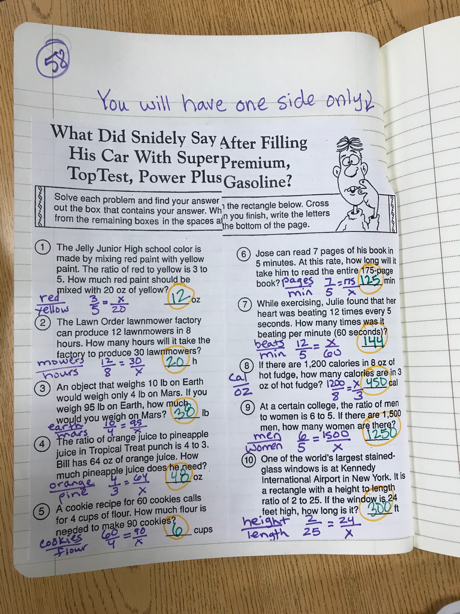 58
You will have one side only↓
What Did Snidely Say After Filling
His Car With Super Premium,
Top Test, Power Plus Gasoline?
Solve each problem and find your answer in the rectangle below. Cross
out the box that contains your answer. When you finish, write the letters
from the remaining boxes in the spaces at the bottom of the page.
1 The Jelly Junior High school color is
made by mixing red paint with yellow
paint. The ratio of red to yellow is 3 to
5. How much red paint should be
mixed with 20 oz of yellow?
red/yellow 3/5 = x/20 12 oz
2 The Law Order lawnmower factory
can produce 12 lawnmowers in 8
hours. How many hours will it take the
factory to produce 30 lawnmowers?
mowers/hours 12/8 = 30/x 20 h
3 An object that weighs 10 lb on Earth
would weigh only 4 lb on Mars. If you
weigh 95 lb on Earth, how much
would you weigh on Mars? 38 lb
earth/mars 10/4 = 95/x
4 The ratio of orange juice to pineapple
juice in Tropical Treat punch is 4 to 3.
Bill has 64 oz of orange juice. How
much pineapple juice does he need?
orange/pine 4/3 = 64/x 48 oz
5 A cookie recipe for 60 cookies calls
for 4 cups of flour. How much flour is
needed to make 90 cookies?
cookies/flour 60/4 = 90/x 6 cups
6 Jose can read 7 pages of his book in
5 minutes. At this rate, how long will it
take him to read the entire 175-page
book? pages/min 7/5 = 175/x 125 min
7 While exercising, Julie found that her
heart was beating 12 times every 5
seconds. How many times was it
beating per minute (60 seconds)?
beats/min 12/5 = x/60 144
8 If there are 1,200 calories in 8 oz of
hot fudge, how many calories are in 3
oz of hot fudge? cal/oz 1200/8 = x/3 450 cal
9 At a certain college, the ratio of men
to women is 6 to 5. If there are 1,500
men, how many women are there?
men/women 6/5 = 1500/x 1250
10 One of the world's largest stained-
glass windows is at Kennedy
International Airport in New York. It is
a rectangle with a height to length
ratio of 2 to 25. If the window is 24
feet high, how long is it? 300 ft
height/length 2/25 = 24/x